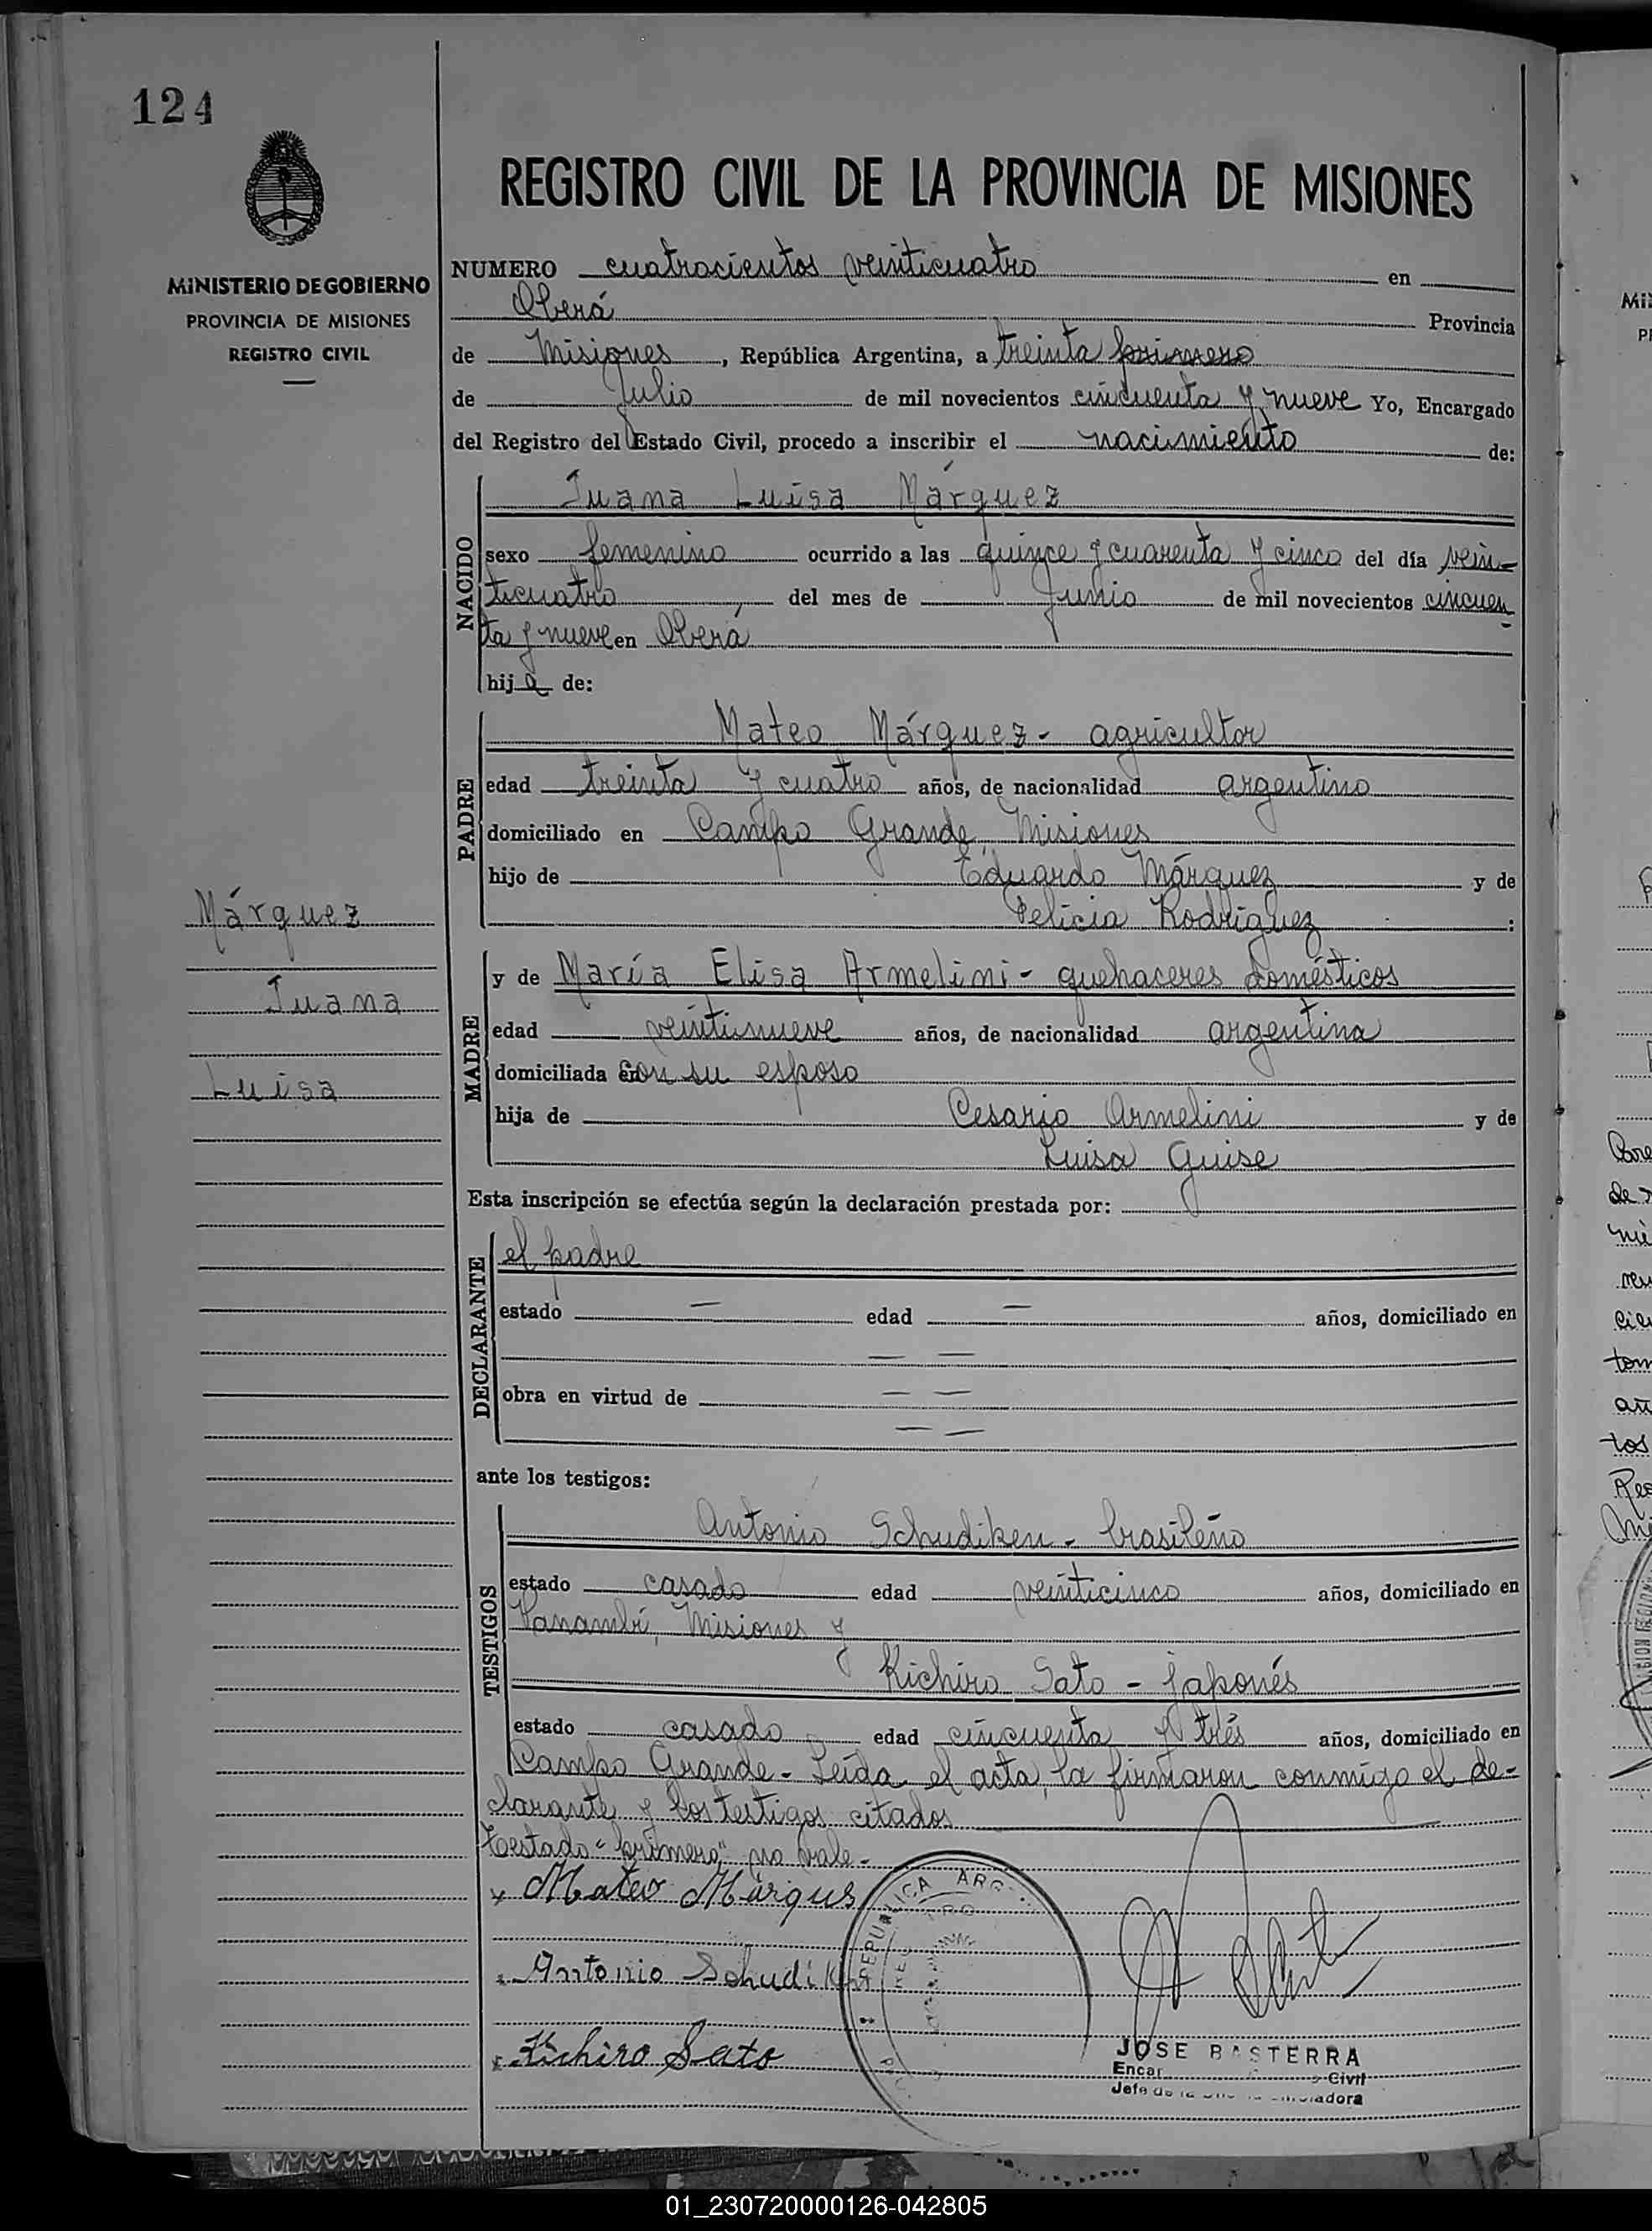 124
MINISTERIO DE GOBIERNO
PROVINCIA DE MISIONES
REGISTRO CIVIL
Márquez
Juana
Luisa
REGISTRO CIVIL DE LA PROVINCIA DE MISIONES
NUMERO cuatrocientos veinticuatro en
Oberá Provincia
de Misiones, República Argentina, a treinta primero
de Julio de mil novecientos cincuenta y nueve Yo, Encargado
del Registro del Estado Civil, procedo a inscribir el nacimiento de:
NACIDO
Juana Luisa Márquez
sexo femenino ocurrido a las quince y cuarenta y cinco del día vein-
ticuatro, del mes de Junio de mil novecientos cincuen
ta y nueve en Oberá
hija de:
PADRE
Mateo Márquez - agricultor
edad treinta y cuatro años, de nacionalidad argentino
domiciliado en Campo Grande, Misiones
hijo de Eduardo Márquez y de
Felicia Rodríguez :
MADRE
y de María Elisa Armelini - quehaceres domésticos
edad veintinueve años, de nacionalidad argentina
domiciliada con su esposo
hija de Cesario Armelini y de
Luisa Guise
Esta inscripción se efectúa según la declaración prestada por:
DECLARANTE
el padre
estado — edad — años, domiciliado en
— —
obra en virtud de — —
— —
ante los testigos:
TESTIGOS
Antonio Schudiken - brasileño
estado casado edad veinticinco años, domiciliado en
Panambí, Misiones y
Kichiro Sato - japonés
estado casado edad cincuenta y trés años, domiciliado en
Campo Grande - Leída el acta, la firmaron conmigo el de-
clarante y los testigos citados
Testado "primero" no vale -
Mateo Márques
Antonio Schudiken
Kichiro Sato
REPUBLICA ARG
JOSE BASTERRA
Civil
Jefe de la
01_230720000126-042805